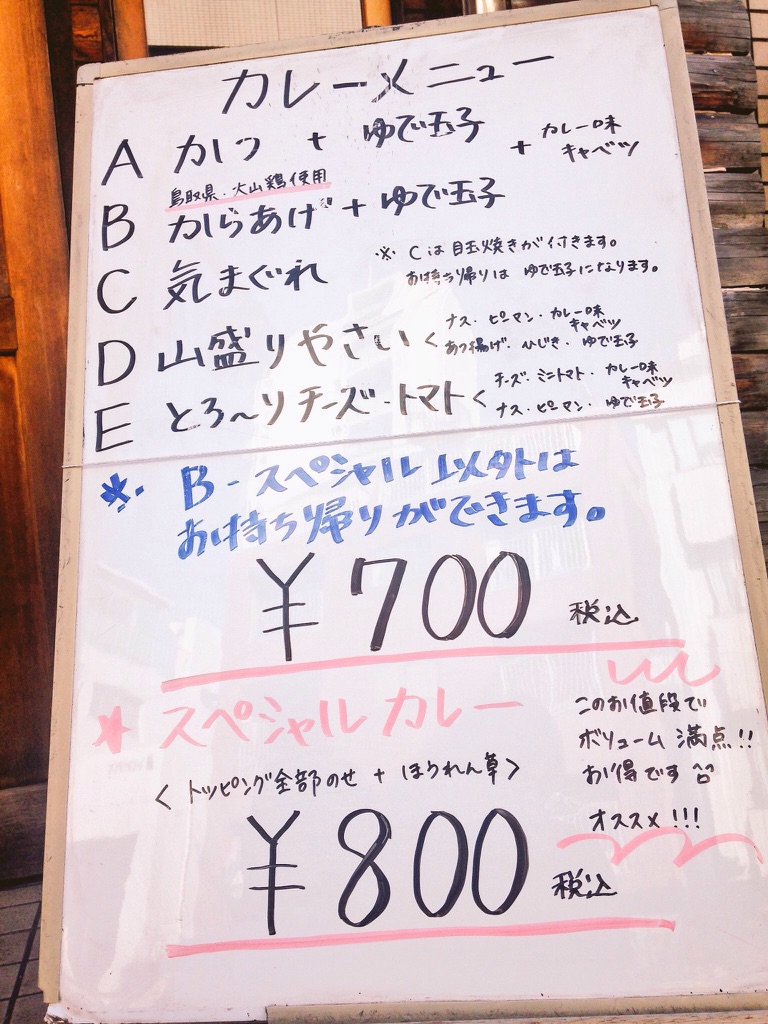 カレーメニュー
A かつ + ゆで玉子 + カレー味キャベツ
鳥取県・大山鶏使用
B からあげ + ゆで玉子
C 気まぐれ ※Cは目玉焼きが付きます。
お持ち帰りは ゆで玉子になります。
D 山盛りやさい < ナス・ピーマン・カレー味キャベツ
あつ揚げ・ひじき・ゆで玉子
E とろ〜りチーズ・トマト < チーズ・ミニトマト・カレー味キャベツ
ナス・ピーマン・ゆで玉子
※. B-スペシャル以外は
お持ち帰りができます。
¥700 税込
* スペシャルカレー
<トッピング全部のせ + ほうれん草>
このお値段で
ボリューム満点!!
お得です
オススメ!!!
¥800 税込